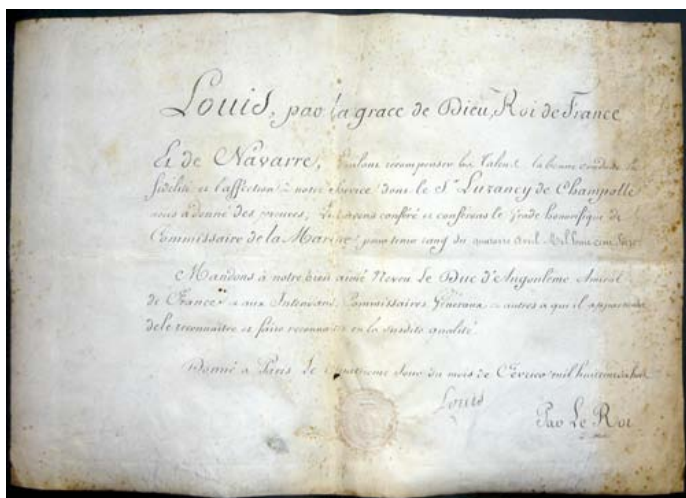 Louis, par la grace de Dieu, Roi de France
Et de Navarre, Voulant récompenser les Talens, la bonne conduite la
fidélité et l'affection à notre Service dont le S.r Luzancy de Champolle
nous a donné des preuves, Lui avons conféré et conférons le Grade honorifique de
Commissaire de la Marine, pour tenir rang du avril Mil huit cent
Mandons à notre bien aimé Neveu Le Duc d'Angoulême Amiral
de France et aux Intendans, Commissaires Généraux et autres a qui il appartiendra
de le reconnaître et faire reconnaître en la susdite qualité.
Donné à Paris le quatrième Jour du mois de mil huit cent
Louis
Par Le Roi